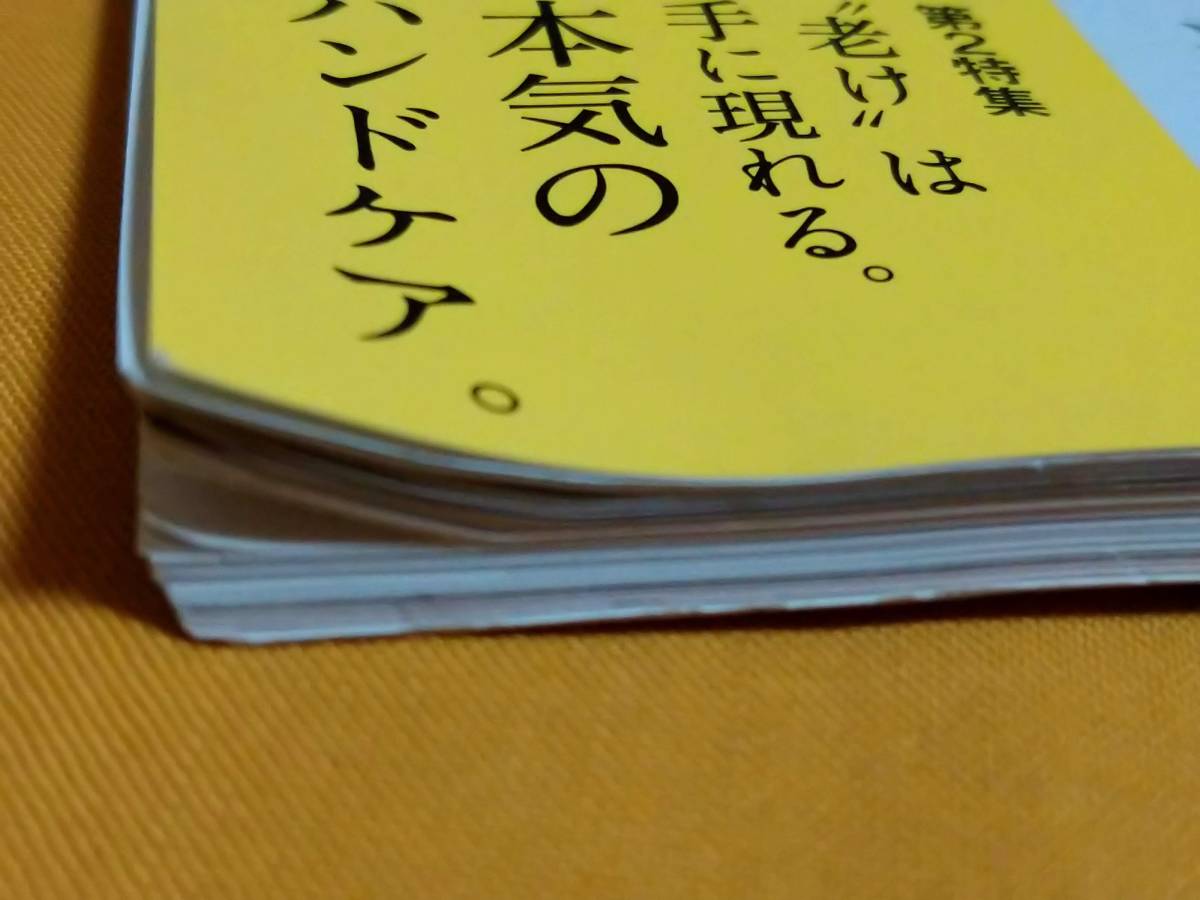 第2特集
〝老け〟は
手に現れる。
本気の
ハンドケア。